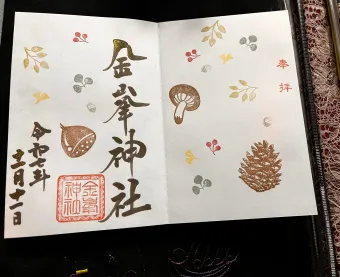 奉拝
金峯神社
令和七年
十一月十一日
金峯
神社